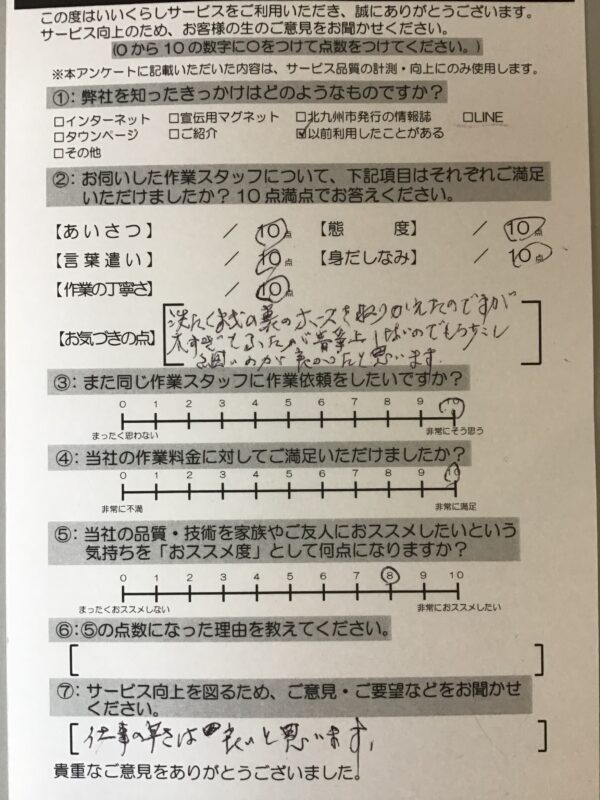 この度はいいくらしサービスをご利用いただき、誠にありがとうございます。
サービス向上のため、お客様の生のご意見をお聞かせください。
(0から10の数字に○をつけて点数をつけてください。)
※本アンケートに記載いただいた内容は、サービス品質の計測・向上にのみ使用します。
①:弊社を知ったきっかけはどのようなものですか?
□インターネット □宣伝用マグネット □北九州市発行の情報誌 □LINE
□タウンページ □ご紹介 ☑以前利用したことがある
□その他
②:お伺いした作業スタッフについて、下記項目はそれぞれご満足
いただけましたか?10点満点でお答えください。
【あいさつ】 / 10点 【態度】 / 10点
【言葉遣い】 / 10点 【身だしなみ】 / 10点
【作業の丁寧さ】 / 10点
洗たくきの裏のホースを取りかえたのですが
【お気づきの点】
のでもう少し
細いのが良かったと思います。
③:また同じ作業スタッフに作業依頼をしたいですか?
0 1 2 3 4 5 6 7 8 9 10
まったく思わない 非常にそう思う
④:当社の作業料金に対してご満足いただけましたか?
0 1 2 3 4 5 6 7 8 9 10
非常に不満 非常に満足
⑤:当社の品質・技術を家族やご友人におススメしたいという
気持ちを「おススメ度」として何点になりますか?
0 1 2 3 4 5 6 7 8 9 10
まったくおススメしない 非常におススメしたい
⑥:⑤の点数になった理由を教えてください。
⑦:サービス向上を図るため、ご意見・ご要望などをお聞かせ
ください。
仕事の早さは良いと思います。
貴重なご意見をありがとうございました。